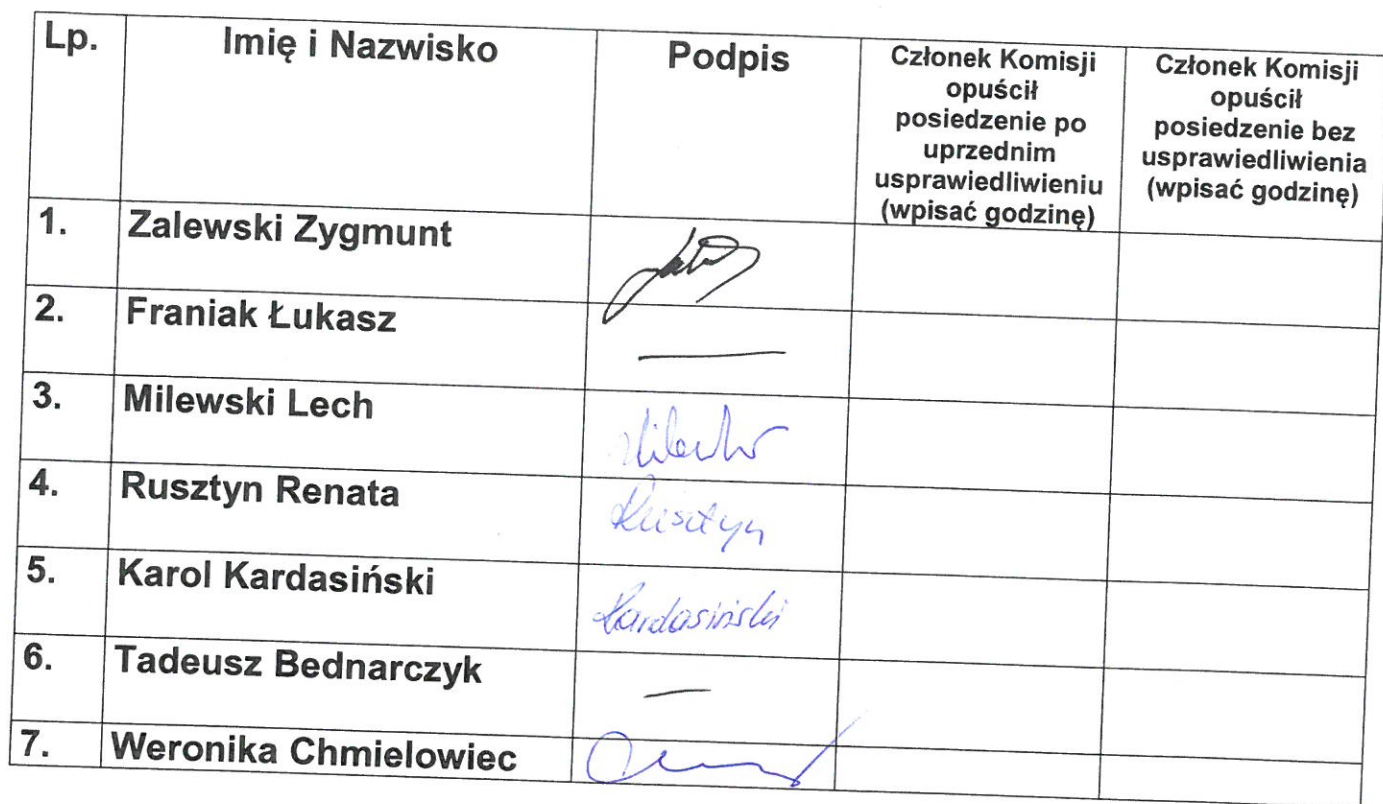 Lp.
Imię i Nazwisko
Podpis
Członek Komisji
opuścił
posiedzenie po
uprzednim
usprawiedliwieniu
(wpisać godzinę)
Członek Komisji
opuścił
posiedzenie bez
usprawiedliwienia
(wpisać godzinę)
1. Zalewski Zygmunt
2. Franiak Łukasz —
3. Milewski Lech
4. Rusztyn Renata Rusztyn
5. Karol Kardasiński Kardasiński
6. Tadeusz Bednarczyk —
7. Weronika Chmielowiec